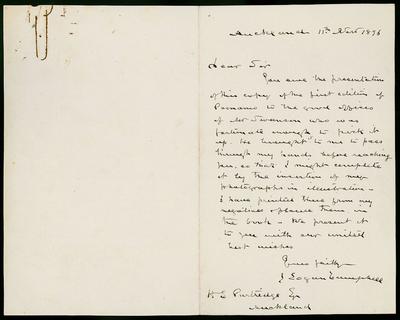 Auckland 11th Nov 1896
Dear Sir
You owe the presentation
of this copy of the first edition of
Poenamo to the good offices
of Mr Swanson who was
fortunate enough to pick it
up. He brought to me to pass
through my hands before reaching
you, so that I might complete
it by the insertion of my
photographs in illustration –
I have printed these from my
negatives & placed them in
the book – We present it
to you with our united
best wishes
Yours faithy
J Logan Campbell
H E Partridge Esq
Auckland